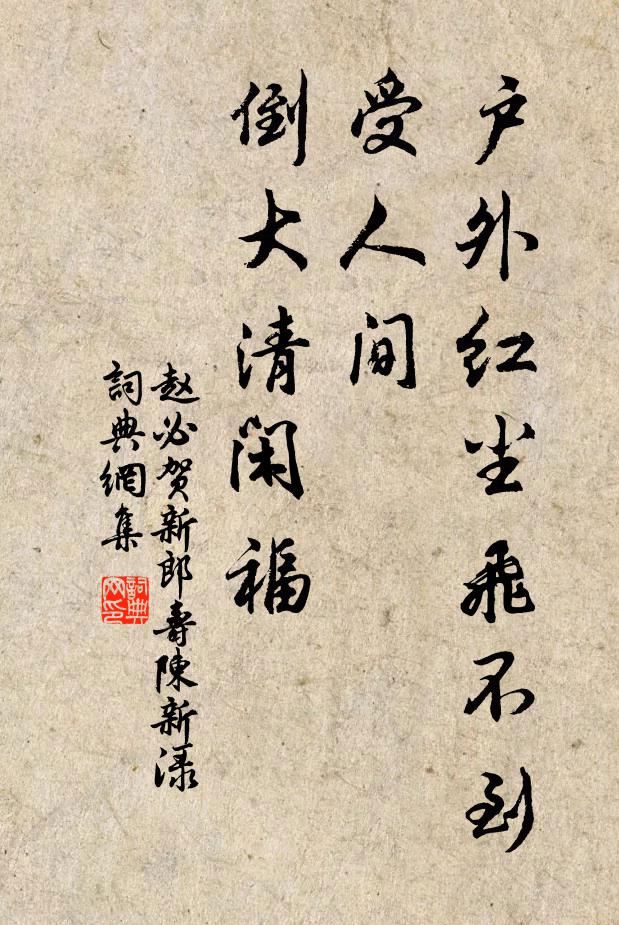 户外红尘飛不到
受人间
倒大清闲福
赵必贺新郎壽陳新渌
詞典網集
詞典网印